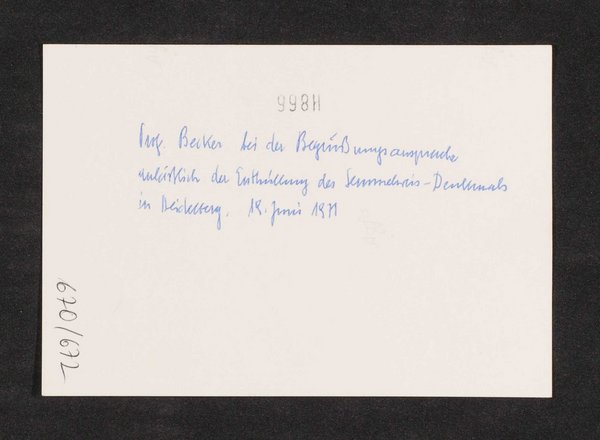 H899
Prof. Becker bei der Begrüßungsansprache
anläßlich der Enthüllung des Semmelweis-Denkmals
in Heidelberg. 18. Juni 1971
670/672